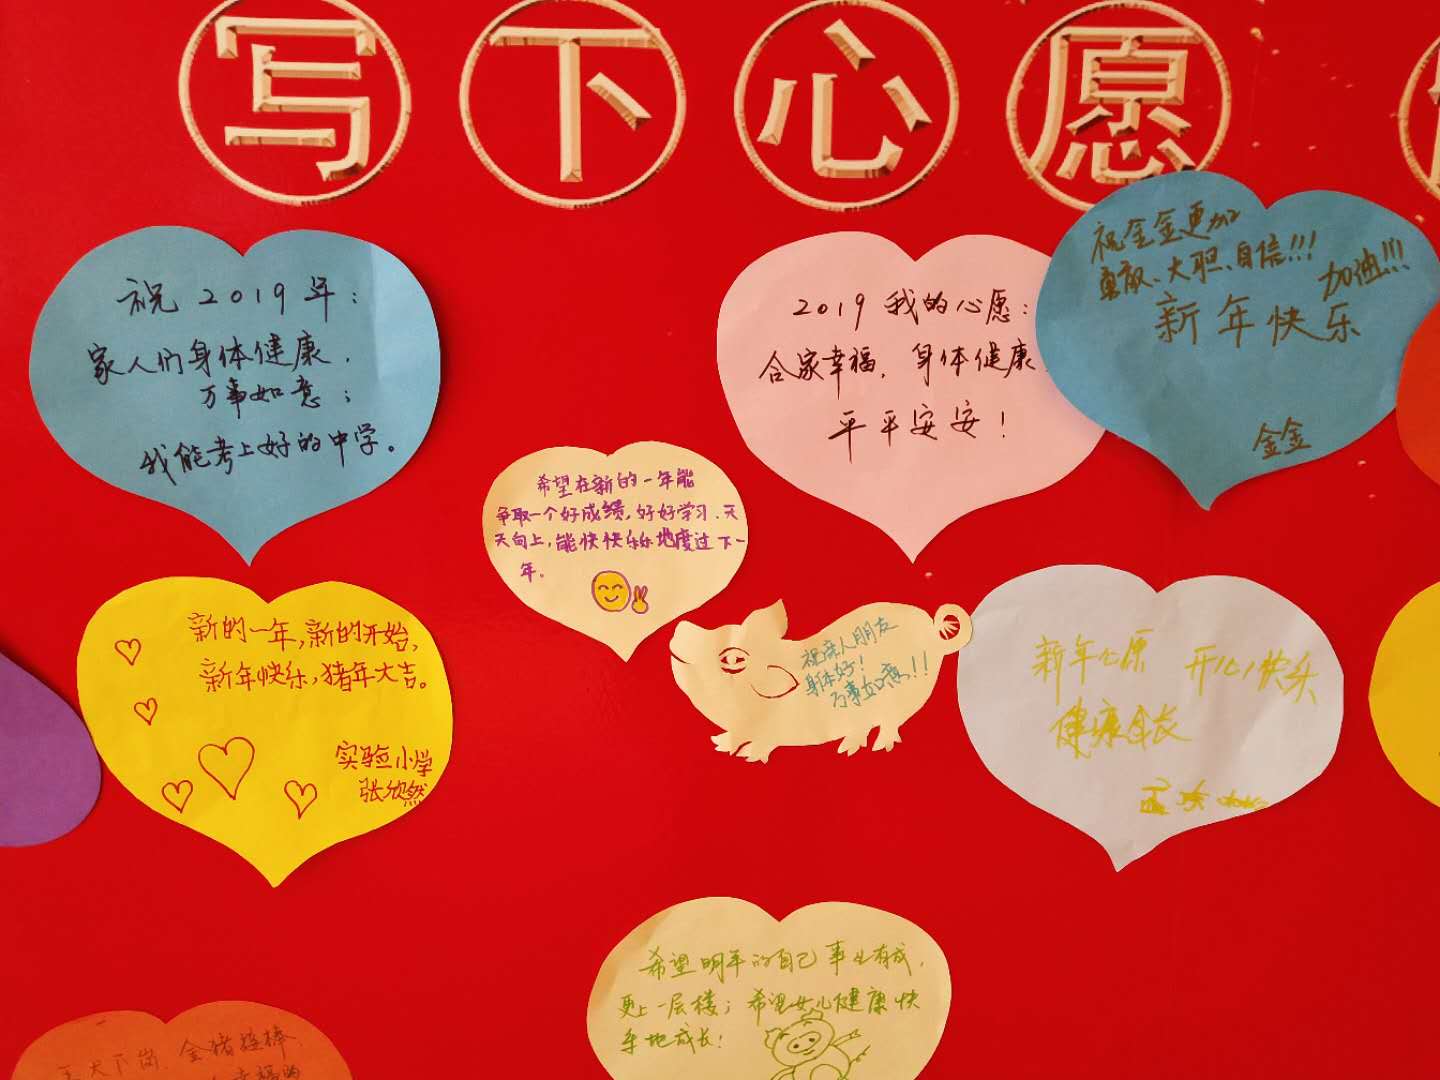 写下心愿
祝2019年：
家人们身体健康，
万事如意；
我能考上好的中学。
2019我的心愿：
合家幸福，身体健康
平平安安！
祝金金更加
勇敢、大胆、自信!!!
加油!!!
新年快乐
金金
希望在新的一年能
争取一个好成绩，好好学习、天
天向上，能快快乐乐地度过下一
年。
新的一年，新的开始，
新年快乐，猪年大吉。
实验小学
张欣然
祝家人朋友
身体好！
万事如意!!
新年心愿 开心快乐
健康成长
希望明年的自己事业有成，
更上一层楼；希望女儿健康快
乐地成长！
天犬下岗，金猪接棒，
幸福的